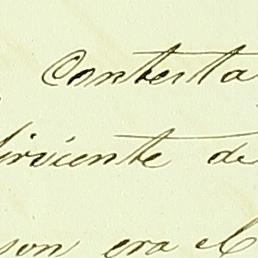 Contesta
sirviente de
son era el